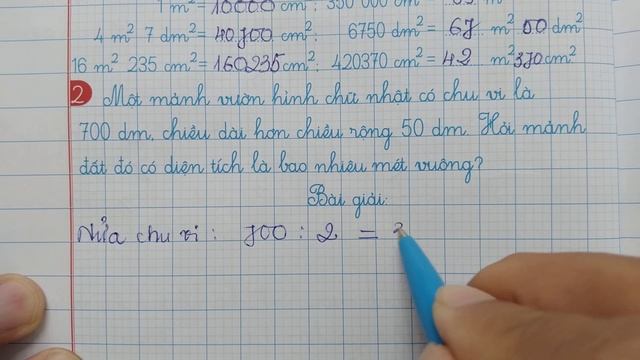 1 m² = 10000 cm²: 350 000 cm²
4 m² 7 dm² = 40700 cm²: 6750 dm² = 67 m² 50 dm²
16 m² 235 cm² = 160235 cm²: 420370 cm² = 42 m² 370 cm²
2 Một mảnh vườn hình chữ nhật có chu vi là
700 dm, chiều dài hơn chiều rộng 50 dm. Hỏi mảnh
đất đó có diện tích là bao nhiêu mét vuông?
Bài giải:
Nửa chu vi: 700 : 2 = 3